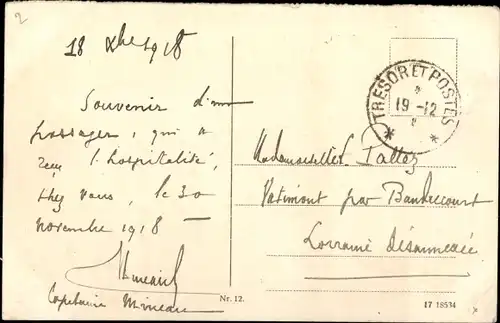 2
18 Xbre 1918
Souvenir d'un
passager, qui a
reçu l'hospitalité,
chez vous, le 30
novembre 1918 —
Capitaine Mineau
TRESOR ET POSTES
19 -12
Mademoiselle Tallez
Vatimont par Baudrecourt
Lorraine désannexée
Nr. 12.
17 18534